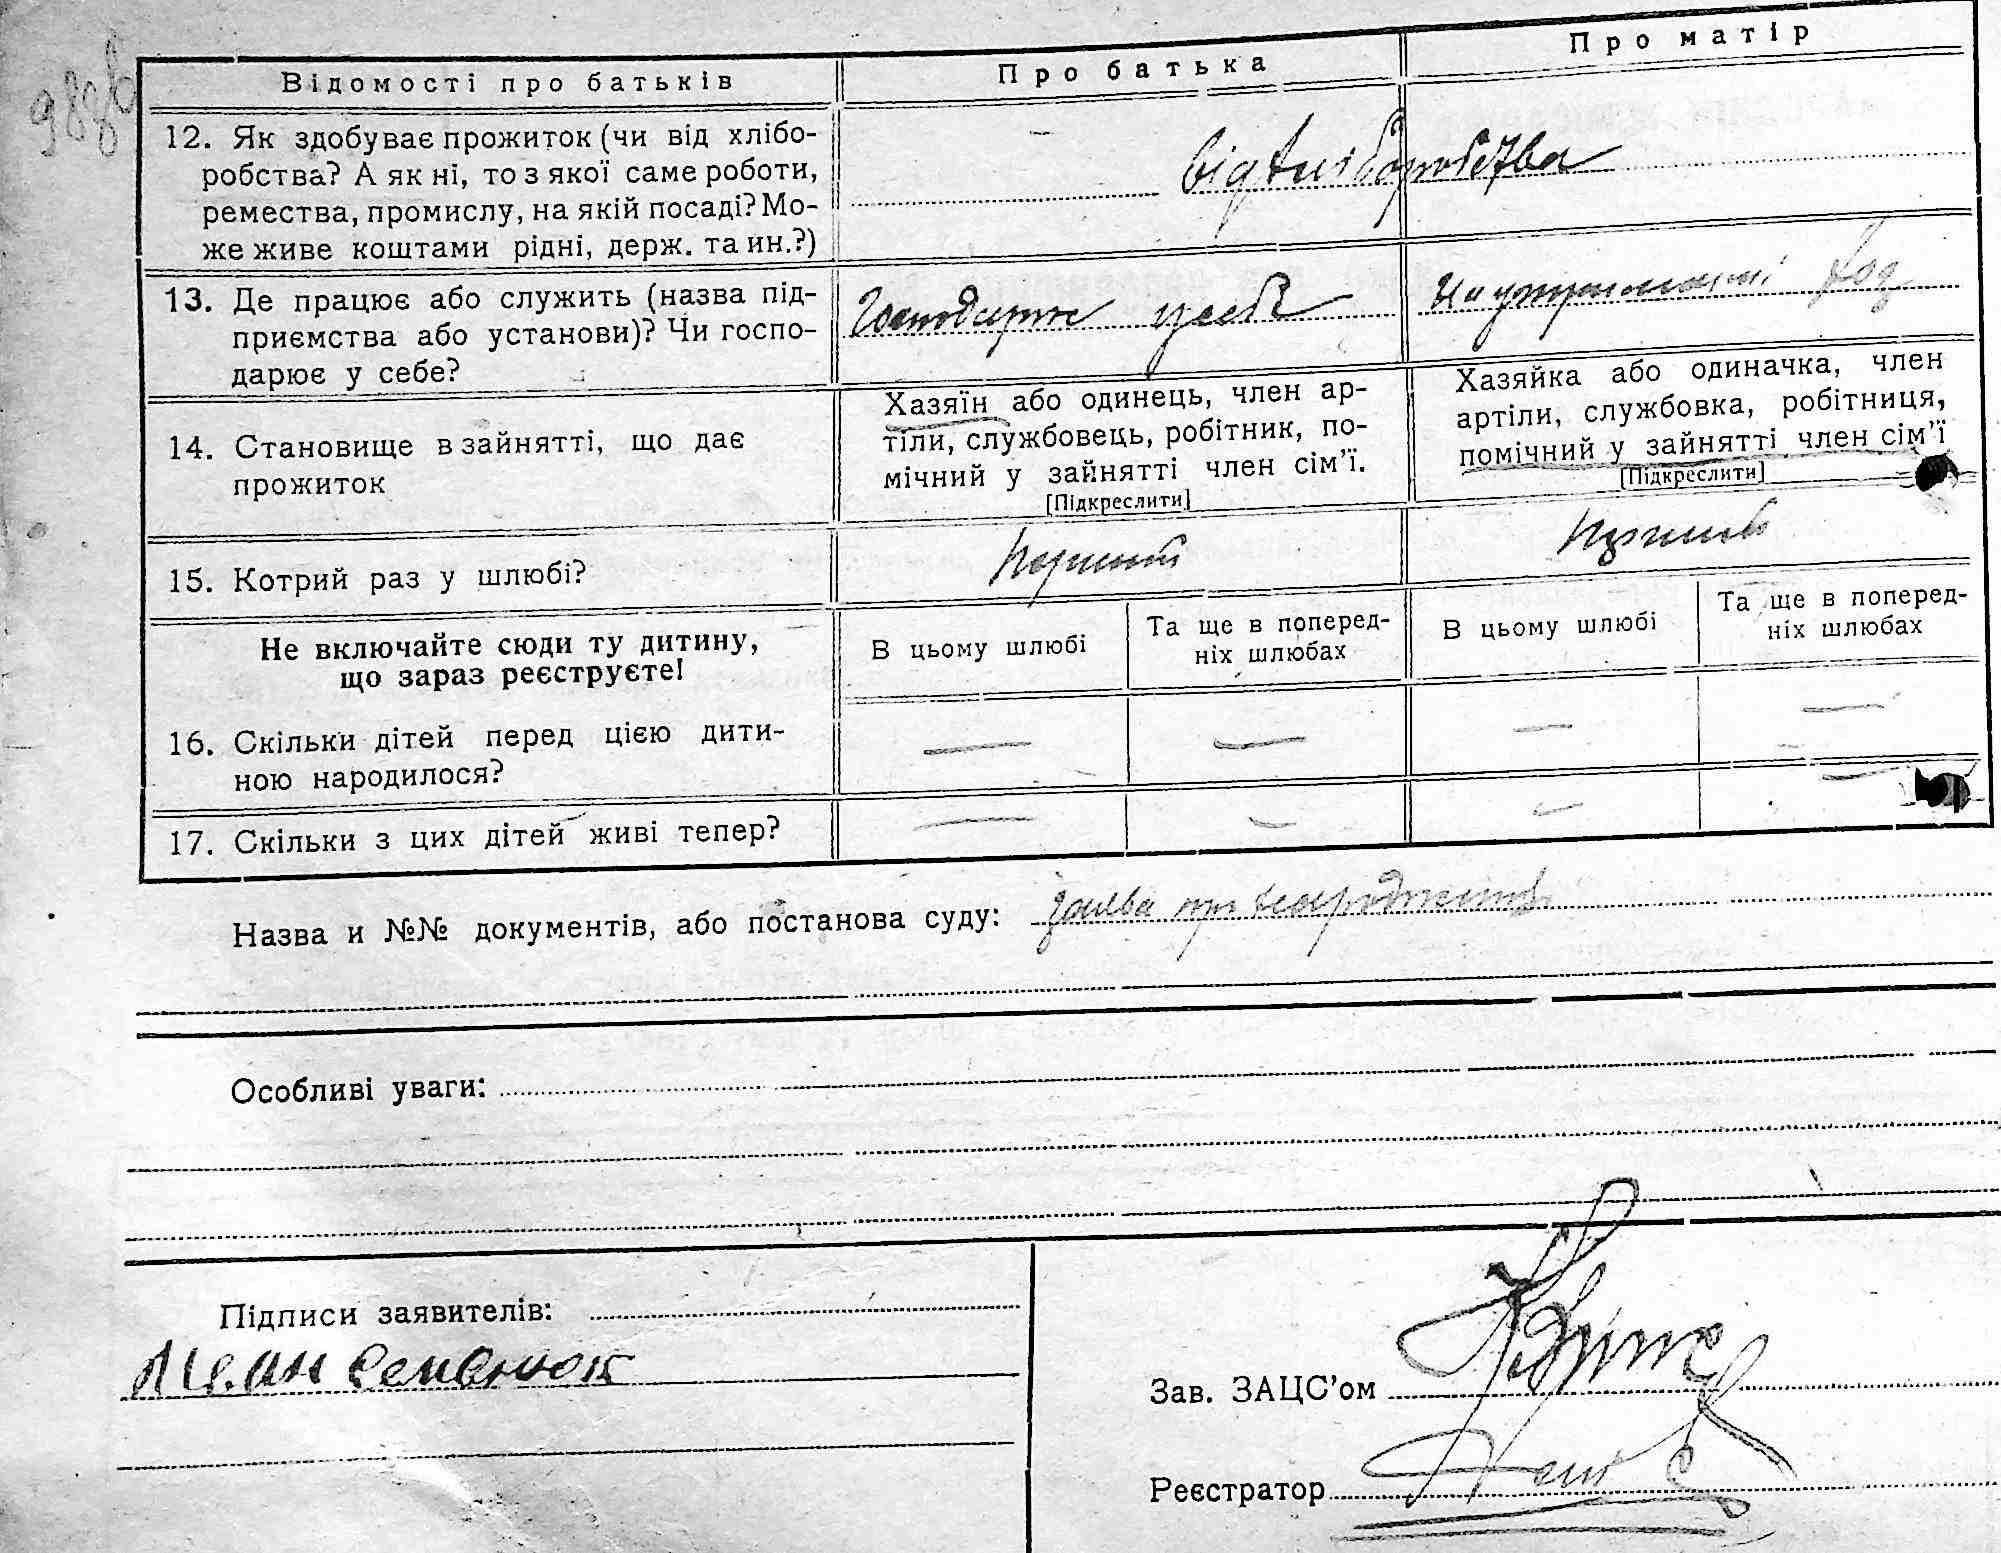 Відомості про батьків
Про батька
Про матір
12. Як здобуває прожиток (чи від хлібо-
робства? А як ні, то з якої саме роботи,
ремества, промислу, на якій посаді? Мо-
же живе коштами рідні, держ. та ин.?)
від хліборобства
13. Де працює або служить (назва під-
приємства або установи)? Чи госпо-
дарює у себе?
Господарює у себе
На утриманні
14. Становище в зайнятті, що дає
прожиток
Хазяїн або одинець, член ар-
тіли, службовець, робітник, по-
мічний у зайнятті член сім'ї.
[Підкреслити]
Хазяйка або одиначка, член
артіли, службовка, робітниця,
помічний у зайнятті член сім'ї
[Підкреслити]
15. Котрий раз у шлюбі?
Перший
Перший
Не включайте сюди ту дитину,
що зараз реєструєте!
В цьому шлюбі
Та ще в поперед-
ніх шлюбах
В цьому шлюбі
Та ще в поперед-
ніх шлюбах
16. Скільки дітей перед цією дити-
ною народилося?
— — — —
17. Скільки з цих дітей живі тепер?
— — — —
Назва и №№ документів, або постанова суду: заява про народження
Особливі уваги:
Підписи заявителів:
Семенюк
Зав. ЗАЦС'ом
Реєстратор